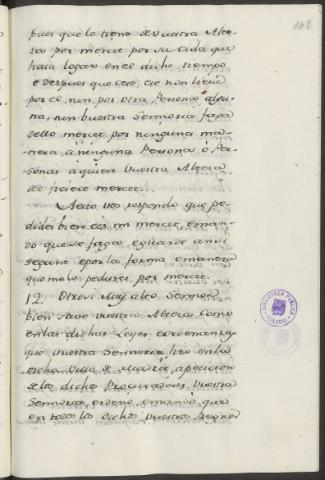 pues que lo tiene de Vuestra Alte-
za por merced por su vida que
haia logar en el dicho tiempo
e despues que cese, e se non lieve
por el, nin por otra Persona algu-
na, nin Vuestra Señoria faga
dello merced por ninguna ma-
nera, á ninguna Persona, ó Per-
sonas á quien Vuestra Alteza
de ficiere merced.
A esto vos respondo que pe-
dides bien e es mi merced, e man-
do que se faga, e guarde ansi
segunt e por la forma e manera
que me lo pedistes por merced.
12. Otrosi Muy alto Señor
bien save Vuestra Alteza como
en las dichas Leyes e ordenanzas
que Vuestra Señoria hizo en la
dicha Villa de Madrid, a peticion
de los dichos Procuradores Vuestra
Señoria, ordenó, e mandó que
en todos los dichos Vuestros Regnos
102
BIBLIOTECA PUBLICA
TOLEDO